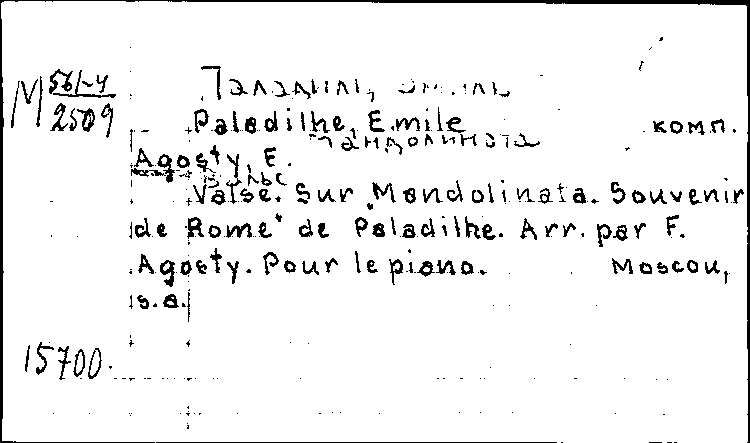 М 561-4
2509
Паладилл, Эмиль
Paladilhe, Emile комп.
Мандолината
Agosty, E.
Вальс
Valse. Sur "Mandolinata. Souvenir
de Rome" de Paladilhe. Arr. par F.
Agosty. Pour le piano. Moscou,
s.a.
15700.